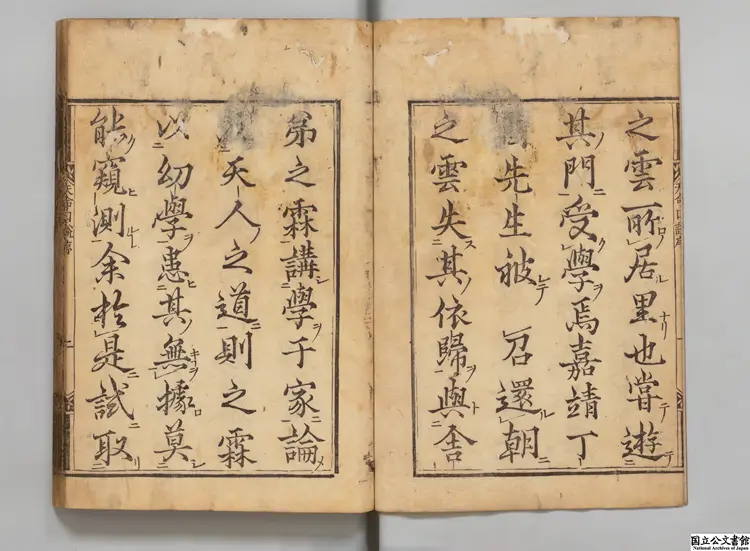 之雲所居里也嘗遊
其門受學焉嘉靖丁
先生被召還朝
之雲失其依歸與舍
弟之霖講學于家論
天人之道則之霖
以幼學患其無據莫
能窺測余於是試取
国立公文書館
National Archives of Japan